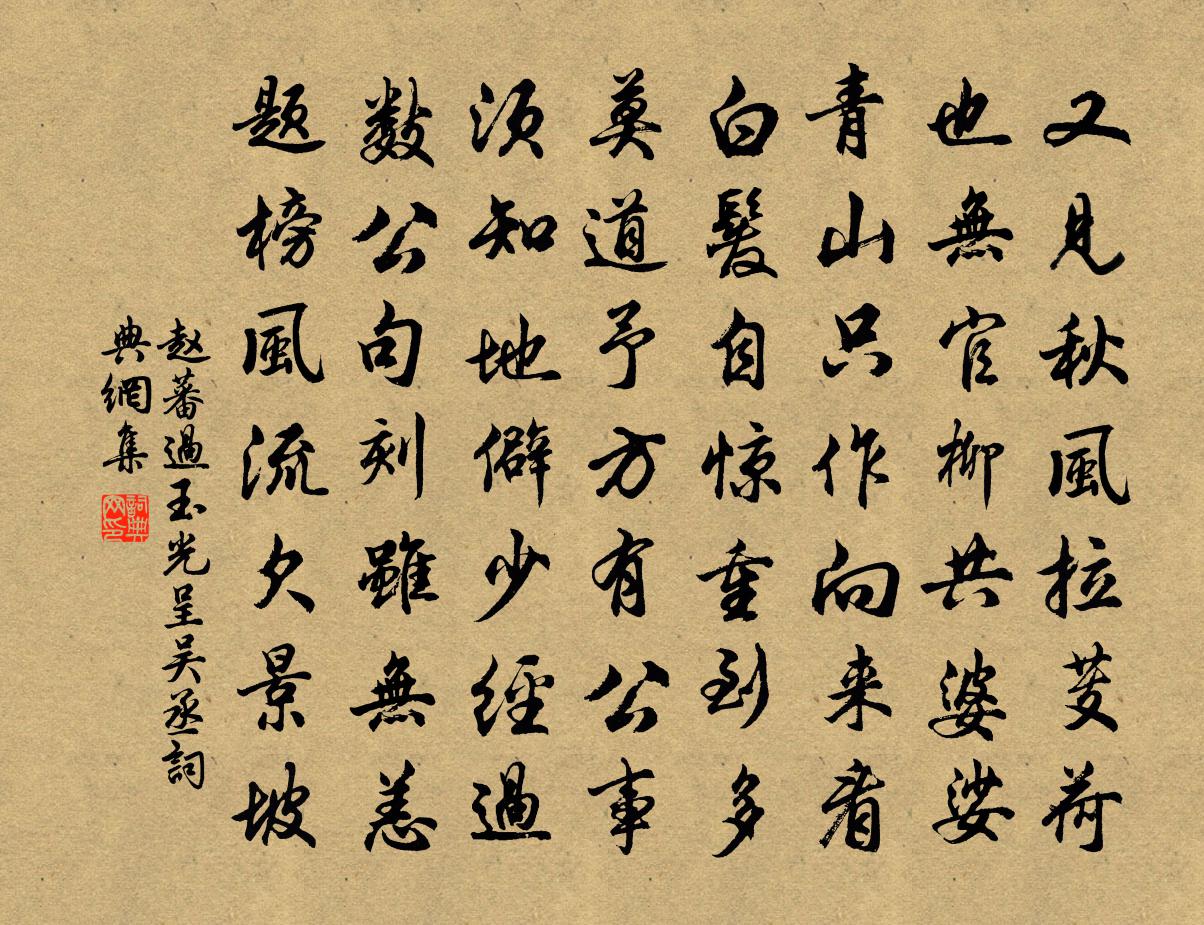 又見秋風拉芰荷
也無官柳共婆娑
青山只作向来看
白髮自惊重到多
莫道予方有公事
须知地僻少經過
數公句刻雖無恙
题榜風流欠景坡
赵蕃過玉光呈吴丞詞
典網集
詞典网印